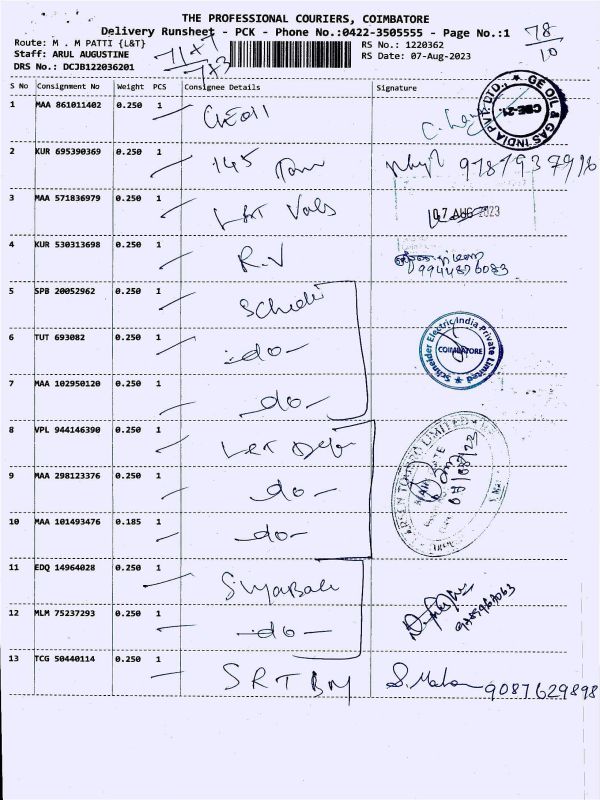 THE PROFESSIONAL COURIERS, COIMBATORE
Delivery Runsheet - PCK - Phone No.:0422-3505555 - Page No.:1
78
10
Route: M . M PATTI {L&T}
RS No.: 1220362
Staff: ARUL AUGUSTINE
71+7
7+3
RS Date: 07-Aug-2023
DRS No.: DCJB122036201
S No Consignment No Weight PCS Consignee Details Signature
1 MAA 861011402 0.250 1 GEOil
GE OIL & GAS INDIA PVT. LTD., CBE-21.
2 KUR 695390369 0.250 1 145
3 MAA 571836979 0.250 1 L&T Valvs
07 AUG 2023
4 KUR 530313698 0.250 1 R.V
9944876083
5 SPB 20052962 0.250 1
6 TUT 693082 0.250 1 -do-
Schneider Electric India Private Limited COIMBATORE
7 MAA 102950120 0.250 1 -do-
8 VPL 944146390 0.250 1 L&T
9 MAA 298123376 0.250 1 -do-
10 MAA 101493476 0.185 1 -do-
11 EDQ 14964028 0.250 1
12 MLM 75237293 0.250 1 -do-
13 TCG 50440114 0.250 1 SRT BM
9087629898